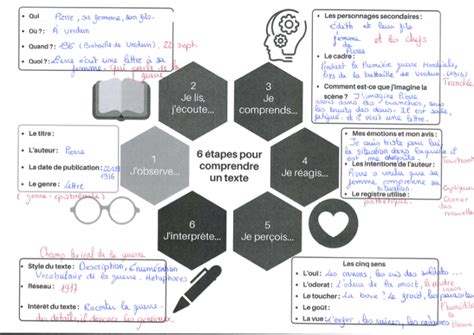 • Qui Pierre, sa femme, son fils.
• Où ? : A Verdun
• Quand ? : 1916 (Bataille de Verdun) 22 sept.
• Quoi ? : Pierre écrit une lettre à sa
femme. Qui parle de la
guerre
• Les personnages secondaires :
Edith et leur fils
femme de
et les chefs
• Le cadre :
Pendant la Première guerre mondiale,
lors de la bataille de Verdun. (1916)
Tranchée
• Comment est-ce que j'imagine la
scène ? J'imagine Pierre
dans les tranchées, sous
les bruits des obus. Il est sale,
fatigué, et il vient une lettre.
2
Je lis,
j'écoute...
3
Je
comprends...
• Le titre :
• L'auteur : Pierre
• La date de publication : 22/09
1916
• Le genre : Lettre
(genre épistolaire)
1
J'observe...
6 étapes pour
comprendre
un texte
4
Je réagis...
• Mes émotions et mon avis :
Je suis triste pour lui,
la situation dans laquelle il est
• Les intentions de l'auteur :
Pierre a voulu que sa
femme comprenne sa
situation.
• Le registre utilisé :
pathétique.
Donner
des
nouvelles
6
J'interprète...
5
Je perçois...
Champ lexical de la guerre
• Style du texte : Description, énumération
Vocabulaire de la guerre. Métaphores
• Réseau : 1917
• Intérêt du texte : Raconter la guerre
des détails, il dénonce les généraux.
Les cinq sens
• L'ouï : Les canons, les cris des soldats...
• L'odorat : L'odeur de la mort, la poudre
• Le toucher : La boue ? Le froid, les parasites
• Le goût :
Humidité
• La vue : L'enfer, les ruines, les cadavres